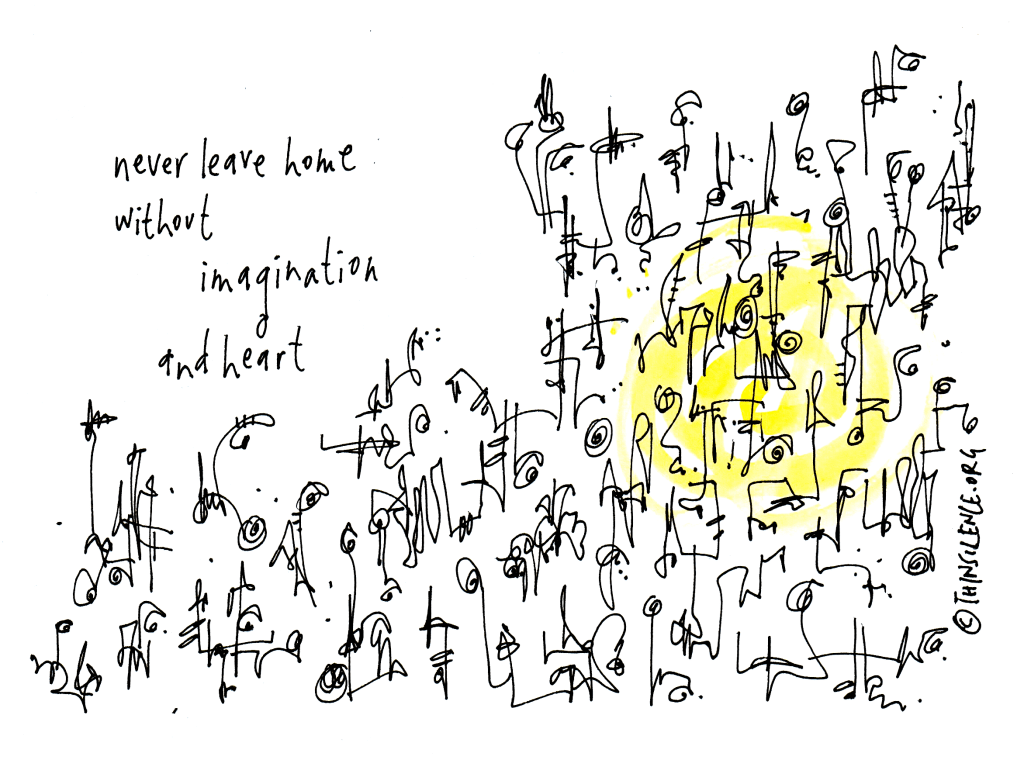 never leave home
without
imagination
and heart
©THINSILENCE.ORG